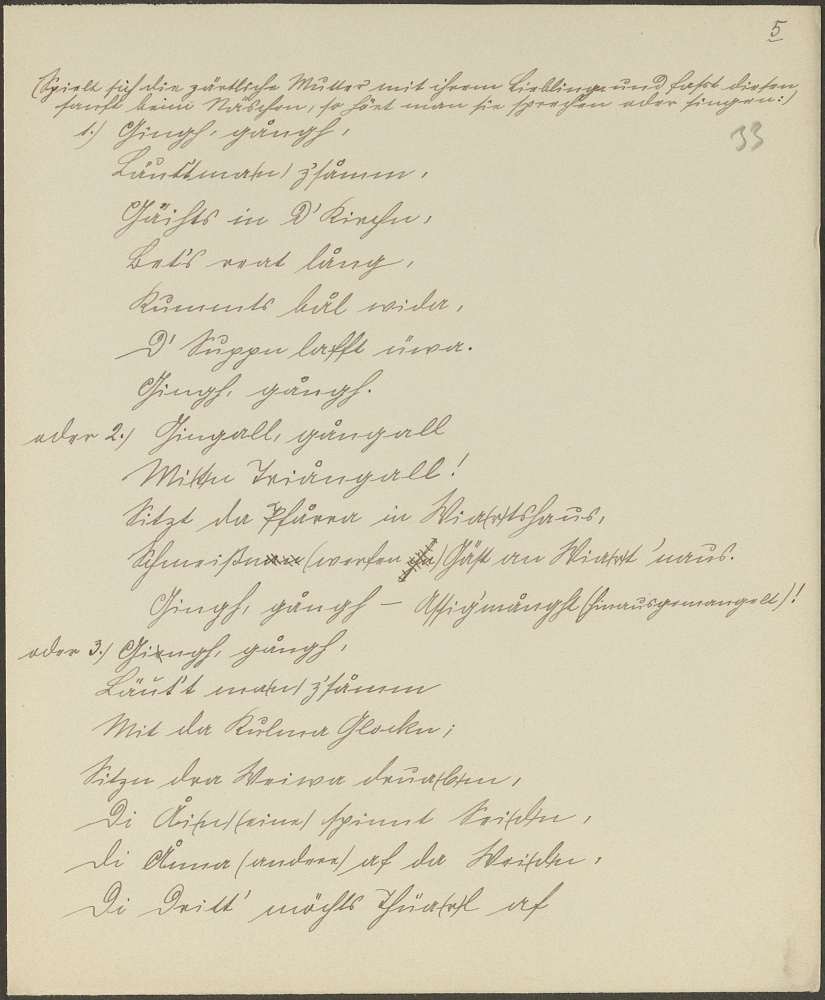 5
(Spielt sich die zärtliche Mutter mit ihrem Liebling und faßt diesen
sanft beim Näschen, so hört man sie sprechen oder singen:)
33
1.) Gingh, gångh,
Läut'tma(n) z'såmm,
Gäihts in D' Kirchn,
Bet's reat lång,
Kummts bål wida,
D' Suppn lafft üwa.
Gingh, gångh.
oder 2.) Gingall, gångall
Mi(t)n Triångall!
Sitzt da Pfårra in Wia(r)tshaus,
Schmeißn (werfen) Gäst an Wia(r)t 'naus.
Gingh, gångh – Assig'månght (hinausgemangelt)!
oder 3.) Gingh, gångh,
Läut't ma(n) z'såmm
Mit da Kulma Glockn;
Sitzn dra Weiwa drua(b)m,
Di Åi(n) (eine) spinnt Sei(d)n,
Di Ånna (andere) af da Wei(d)n,
Di Dritt' möchts Thüa(r)l af